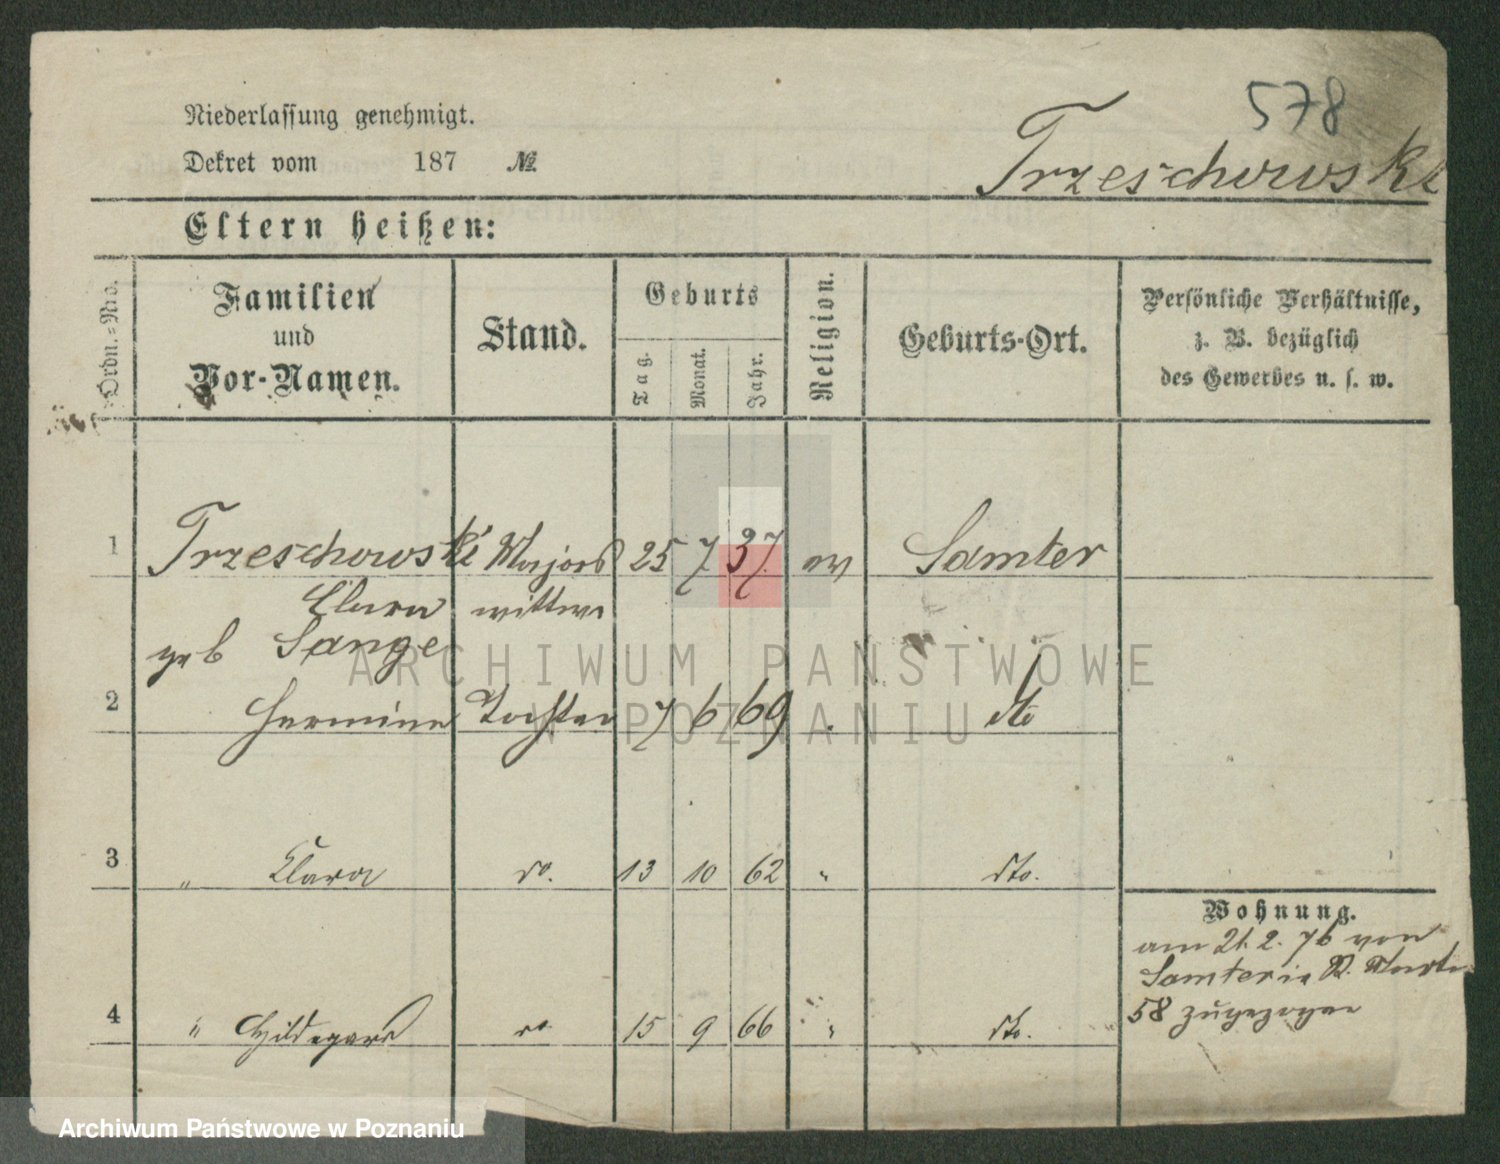 578
Niederlassung genehmigt.
Dekret vom 187 №
Trzeschowski
Eltern heißen:
Ordn.=Nro.
Familien und Vor-Namen.
Stand.
Geburts
Tag.
Monat.
Jahr.
Religion.
Geburts-Ort.
Persönliche Verhältnisse,
z. B. bezüglich
des Gewerbes u. s. w.
1 Trzeschowski Majors 25 7 37 ev Samter
Clara wittwe
geb Lange
2 Hermine Tochter 7 6 69 " dto
3 " Clara do. 13 10 62 " dto.
Wohnung.
am 21. 2. 76 von
Samter in St. Martin
58 zugezogen
4 " Hildegard do. 15 9 66 " dto.
ARCHIWUM PAŃSTWOWE
W POZNANIU
Archiwum Państwowe w Poznaniu